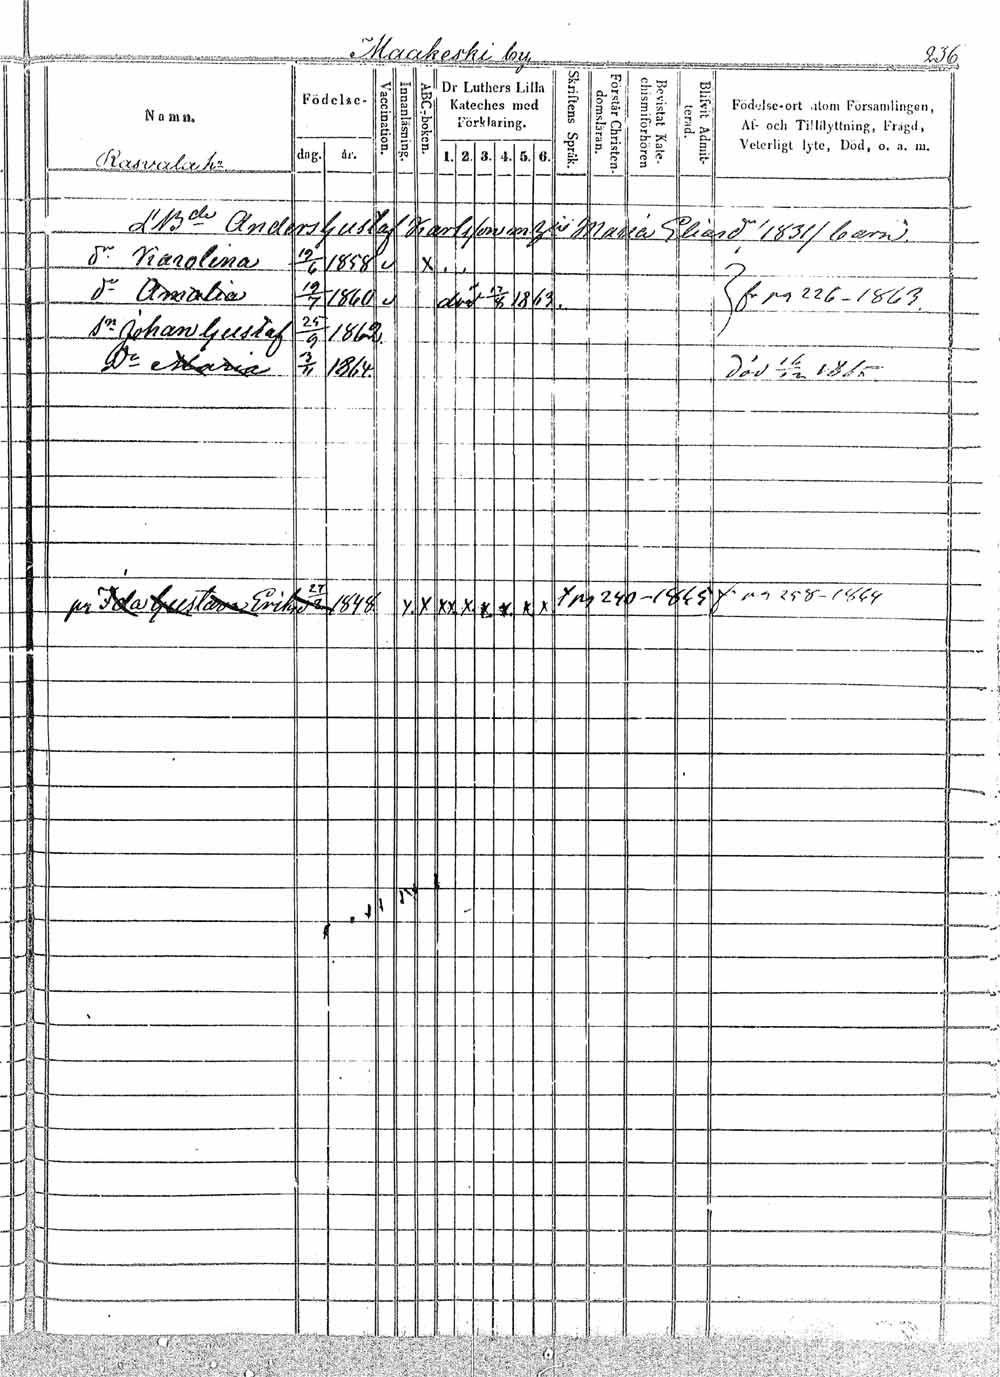 Maakeski by
236
Namn.
Födelse-
dag. år.
Vaccination.
Innanläsning.
ABC-boken.
Dr Luthers Lilla
Kateches med
Förklaring.
1. 2. 3. 4. 5. 6.
Skriftens Språk.
Förstår Christen-
domsläran.
Bevistat Kate-
chismiförhören
Blifvit Admit-
terad.
Födelse-ort utom Församlingen,
Af- och Tillflyttning, Frägd,
Veterligt lyte, Död, o. a. m.
Kasvala
Anders Gustaf Karlsson Maria 1831/ barn.
dr Karolina 1858 x
dr Amalia 19/7 1860 död 1863. fr pg 226-1863
sn Johan Gustaf 25/9 1862.
Dr Maria 1864. död
pg Ida Gustava Erik 1848 x. x xx x. x. x. x x pg 240-1865 fr pg 258-1864